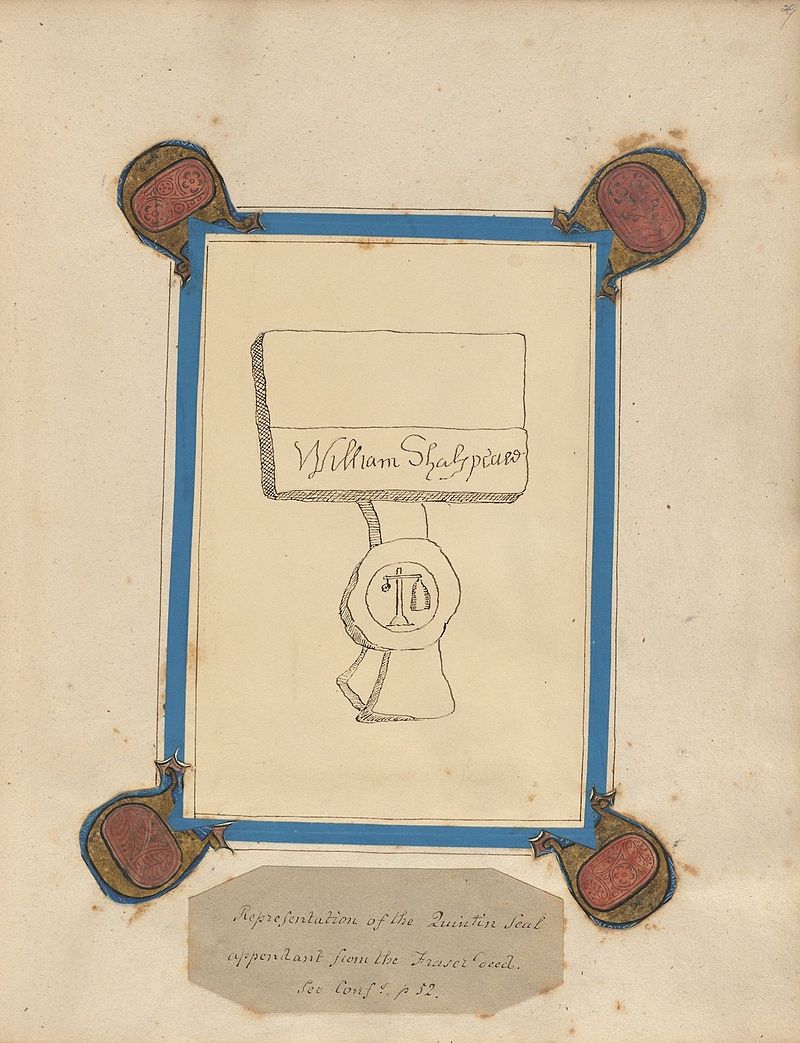 29
William Shakspeare
Representation of the Quintin Seal
appendant from the Fraser deed.
See Confs. p 52.